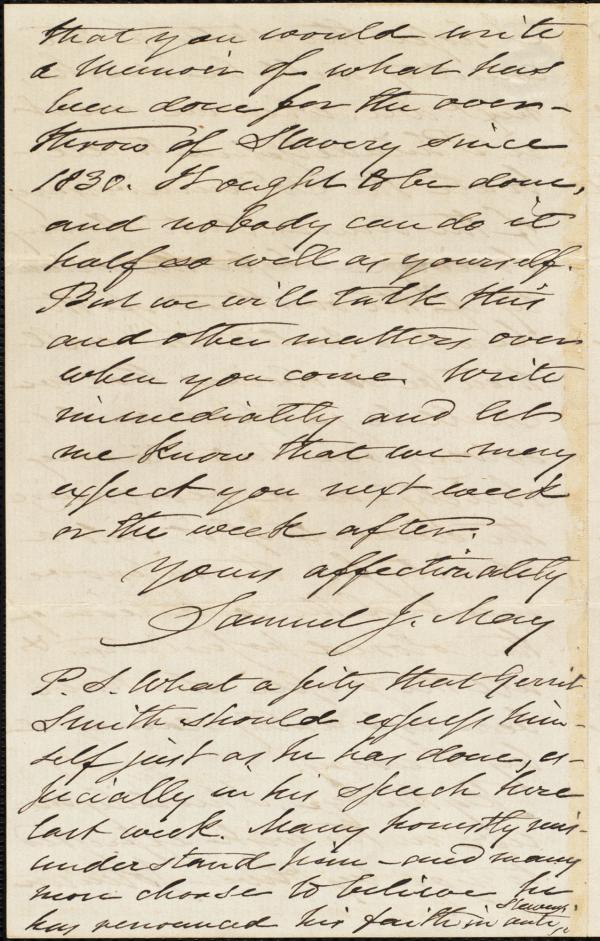 that you would write
a Memoir of what has
been done for the over-
throw of Slavery since
1830. It ought to be done,
and nobody can do it
half so well as yourself.
But we will talk this
and other matters over
when you come. Write
immediately and let
me know that we may
expect you next week
or the week after.
Yours affectionately
Samuel J. May
P. S. What a pity that Gerrit
Smith should express him-
self just as he has done, es-
pecially in his speech here
last week. Many honestly mis-
understand him - and many
more choose to believe he
has renounced his faith in anti-
Slavery.